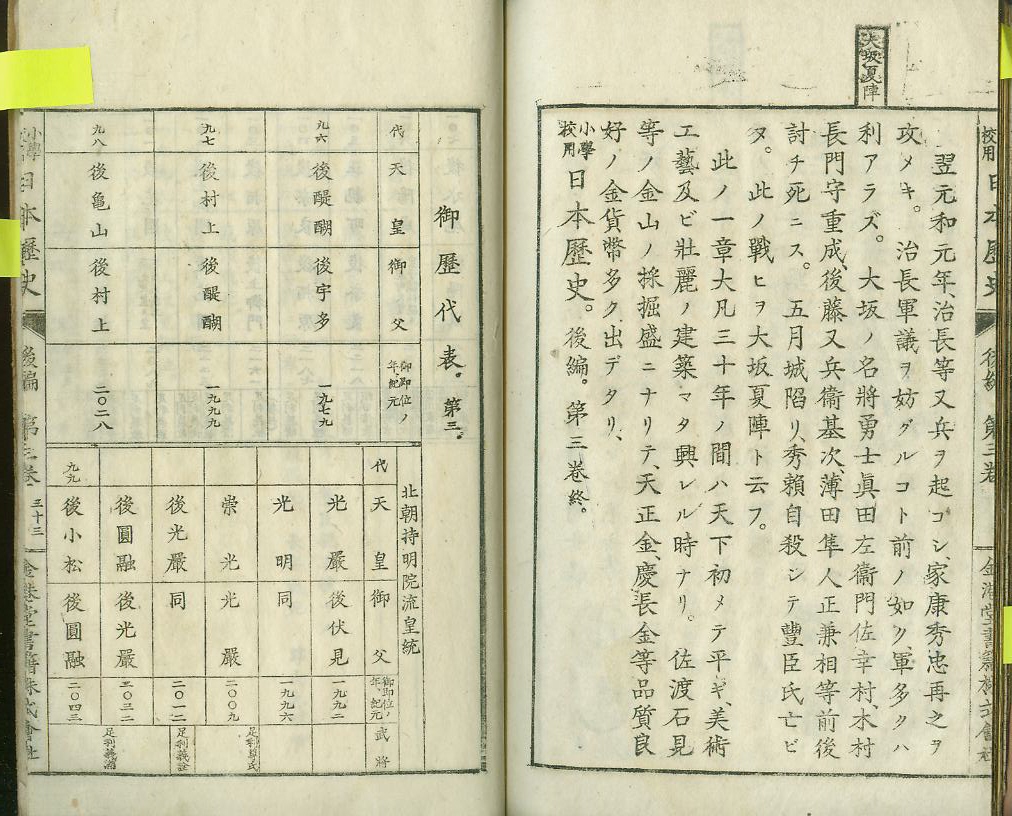 大坂夏陣
校用 日本歷史 後編 第三卷 金港堂書籍株式會社
翌元和元年、治長等又兵ヲ起コシ、家康秀忠再之ヲ
攻メキ。治長軍議ヲ妨グルコト前ノ如ク軍多クハ
利アラズ。大坂ノ名將勇士眞田左衞門佐幸村、木村
長門守重成、後藤又兵衞基次、薄田隼人正兼相等前後
討チ死ニス。五月城陷リ、秀賴自殺シテ豐臣氏亡ビ
タ。此ノ戰ヒヲ大坂夏陣ト云フ。
此ノ一章大凡三十年ノ間ハ天下初メテ平ギ、美術
工藝及ビ壯麗ノ建築マタ興レル時ナリ。佐渡石見
等ノ金山ノ採掘盛ニナリテ、天正金、慶長金等品質良
好ノ金貨幣多ク出デタリ、
小學校用 日本歷史。後編。第三卷終。
御歷代表。第三。
代 天皇 御父 御即位ノ年、紀元
九六 後醍醐 後宇多 一九七九
九七 後村上 後醍醐 一九九九
九八 後龜山 後村上 二〇二八
北朝持明院流皇統
代 天皇 御父 御即位ノ年、紀元 武將
光嚴 後伏見 一九九二
光明 同 一九九六
崇光 光嚴 二〇〇九 足利尊氏
後光嚴 同 二〇一二 足利義詮
後圓融 後光嚴 二〇三二 足利義滿
九九 後小松 後圓融 二〇四三
小學校用 日本歷史 後編 第三卷 三十三 金港堂書籍株式會社